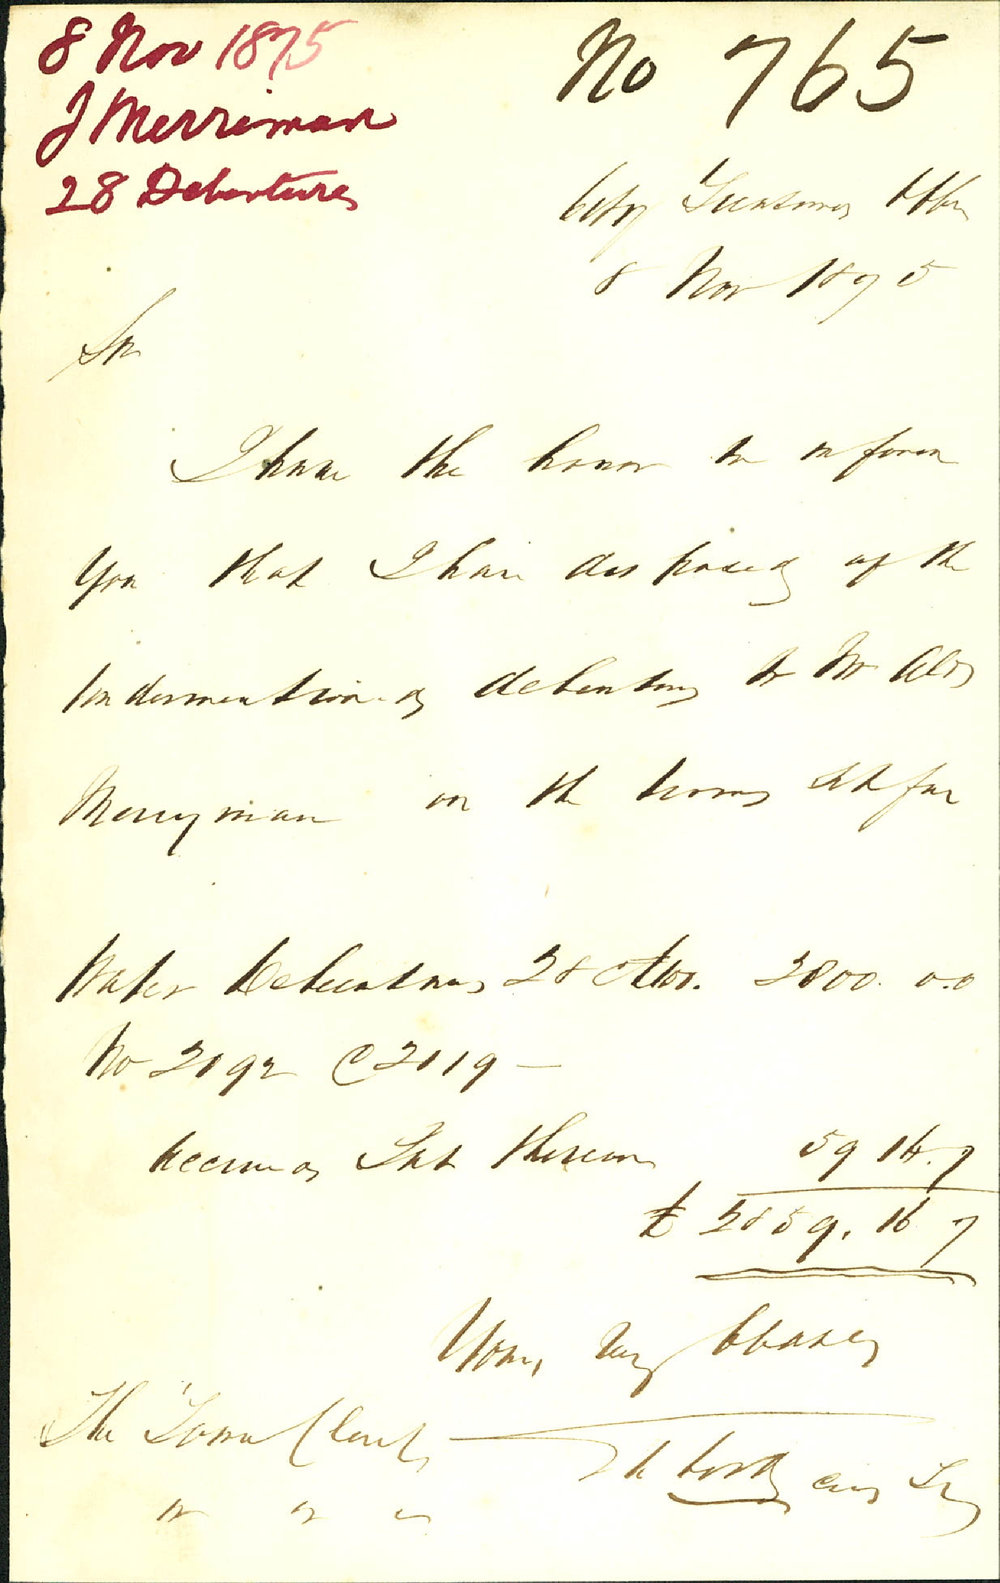 8 Nov 1875
J Merriman
28 Debentures
No 765
City Treasurers Office
8 Nov 1875
Sir
I have the honor to inform
you that I have disposed of the
undermentioned debentures to Mr Ald
Merryman on the terms set for
Water Debentures 28 2800. 0.0
No 2092 @ 2119 —
Accrued Int thereon 59 16. 7
£ 2859. 16 7
Yours very Obediently
The Town Clerk
" " "
City